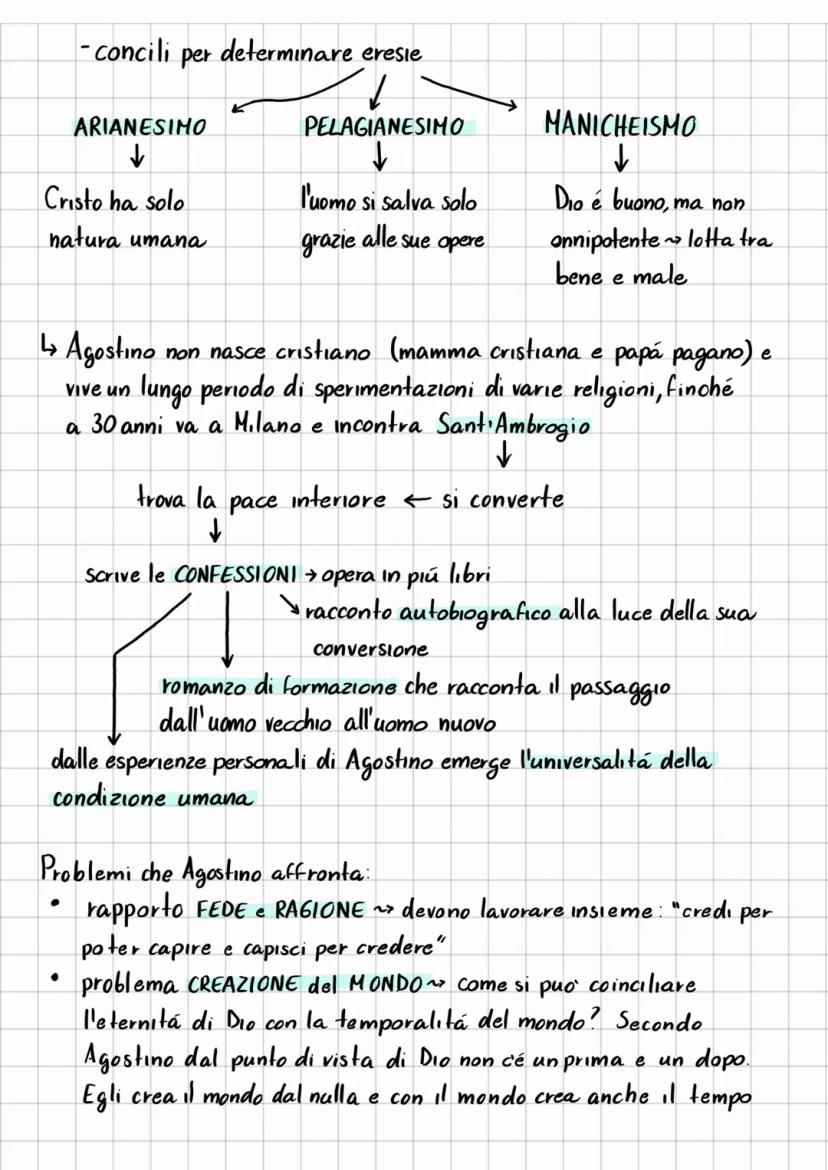 - concili per determinare eresie
ARIANESIMO PELAGIANESIMO MANICHEISMO
Cristo ha solo l'uomo si salva solo Dio é buono, ma non
natura umana grazie alle sue opere onnipotente ~> lotta tra
bene e male
↳ Agostino non nasce cristiano (mamma cristiana e papá pagano) e
vive un lungo periodo di sperimentazioni di varie religioni, finché
a 30 anni va a Milano e incontra Sant'Ambrogio
trova la pace interiore ← si converte
scrive le CONFESSIONI → opera in piú libri
racconto autobiografico alla luce della sua
conversione
romanzo di formazione che racconta il passaggio
dall'uomo vecchio all'uomo nuovo
dalle esperienze personali di Agostino emerge l'universalitá della
condizione umana
Problemi che Agostino affronta:
• rapporto FEDE e RAGIONE ~> devono lavorare insieme: "credi per
poter capire e capisci per credere"
• problema CREAZIONE del MONDO ~> come si puo' coinciliare
l'eternitá di Dio con la temporalitá del mondo? Secondo
Agostino dal punto di vista di Dio non c'é un prima e un dopo.
Egli crea il mondo dal nulla e con il mondo crea anche il tempo